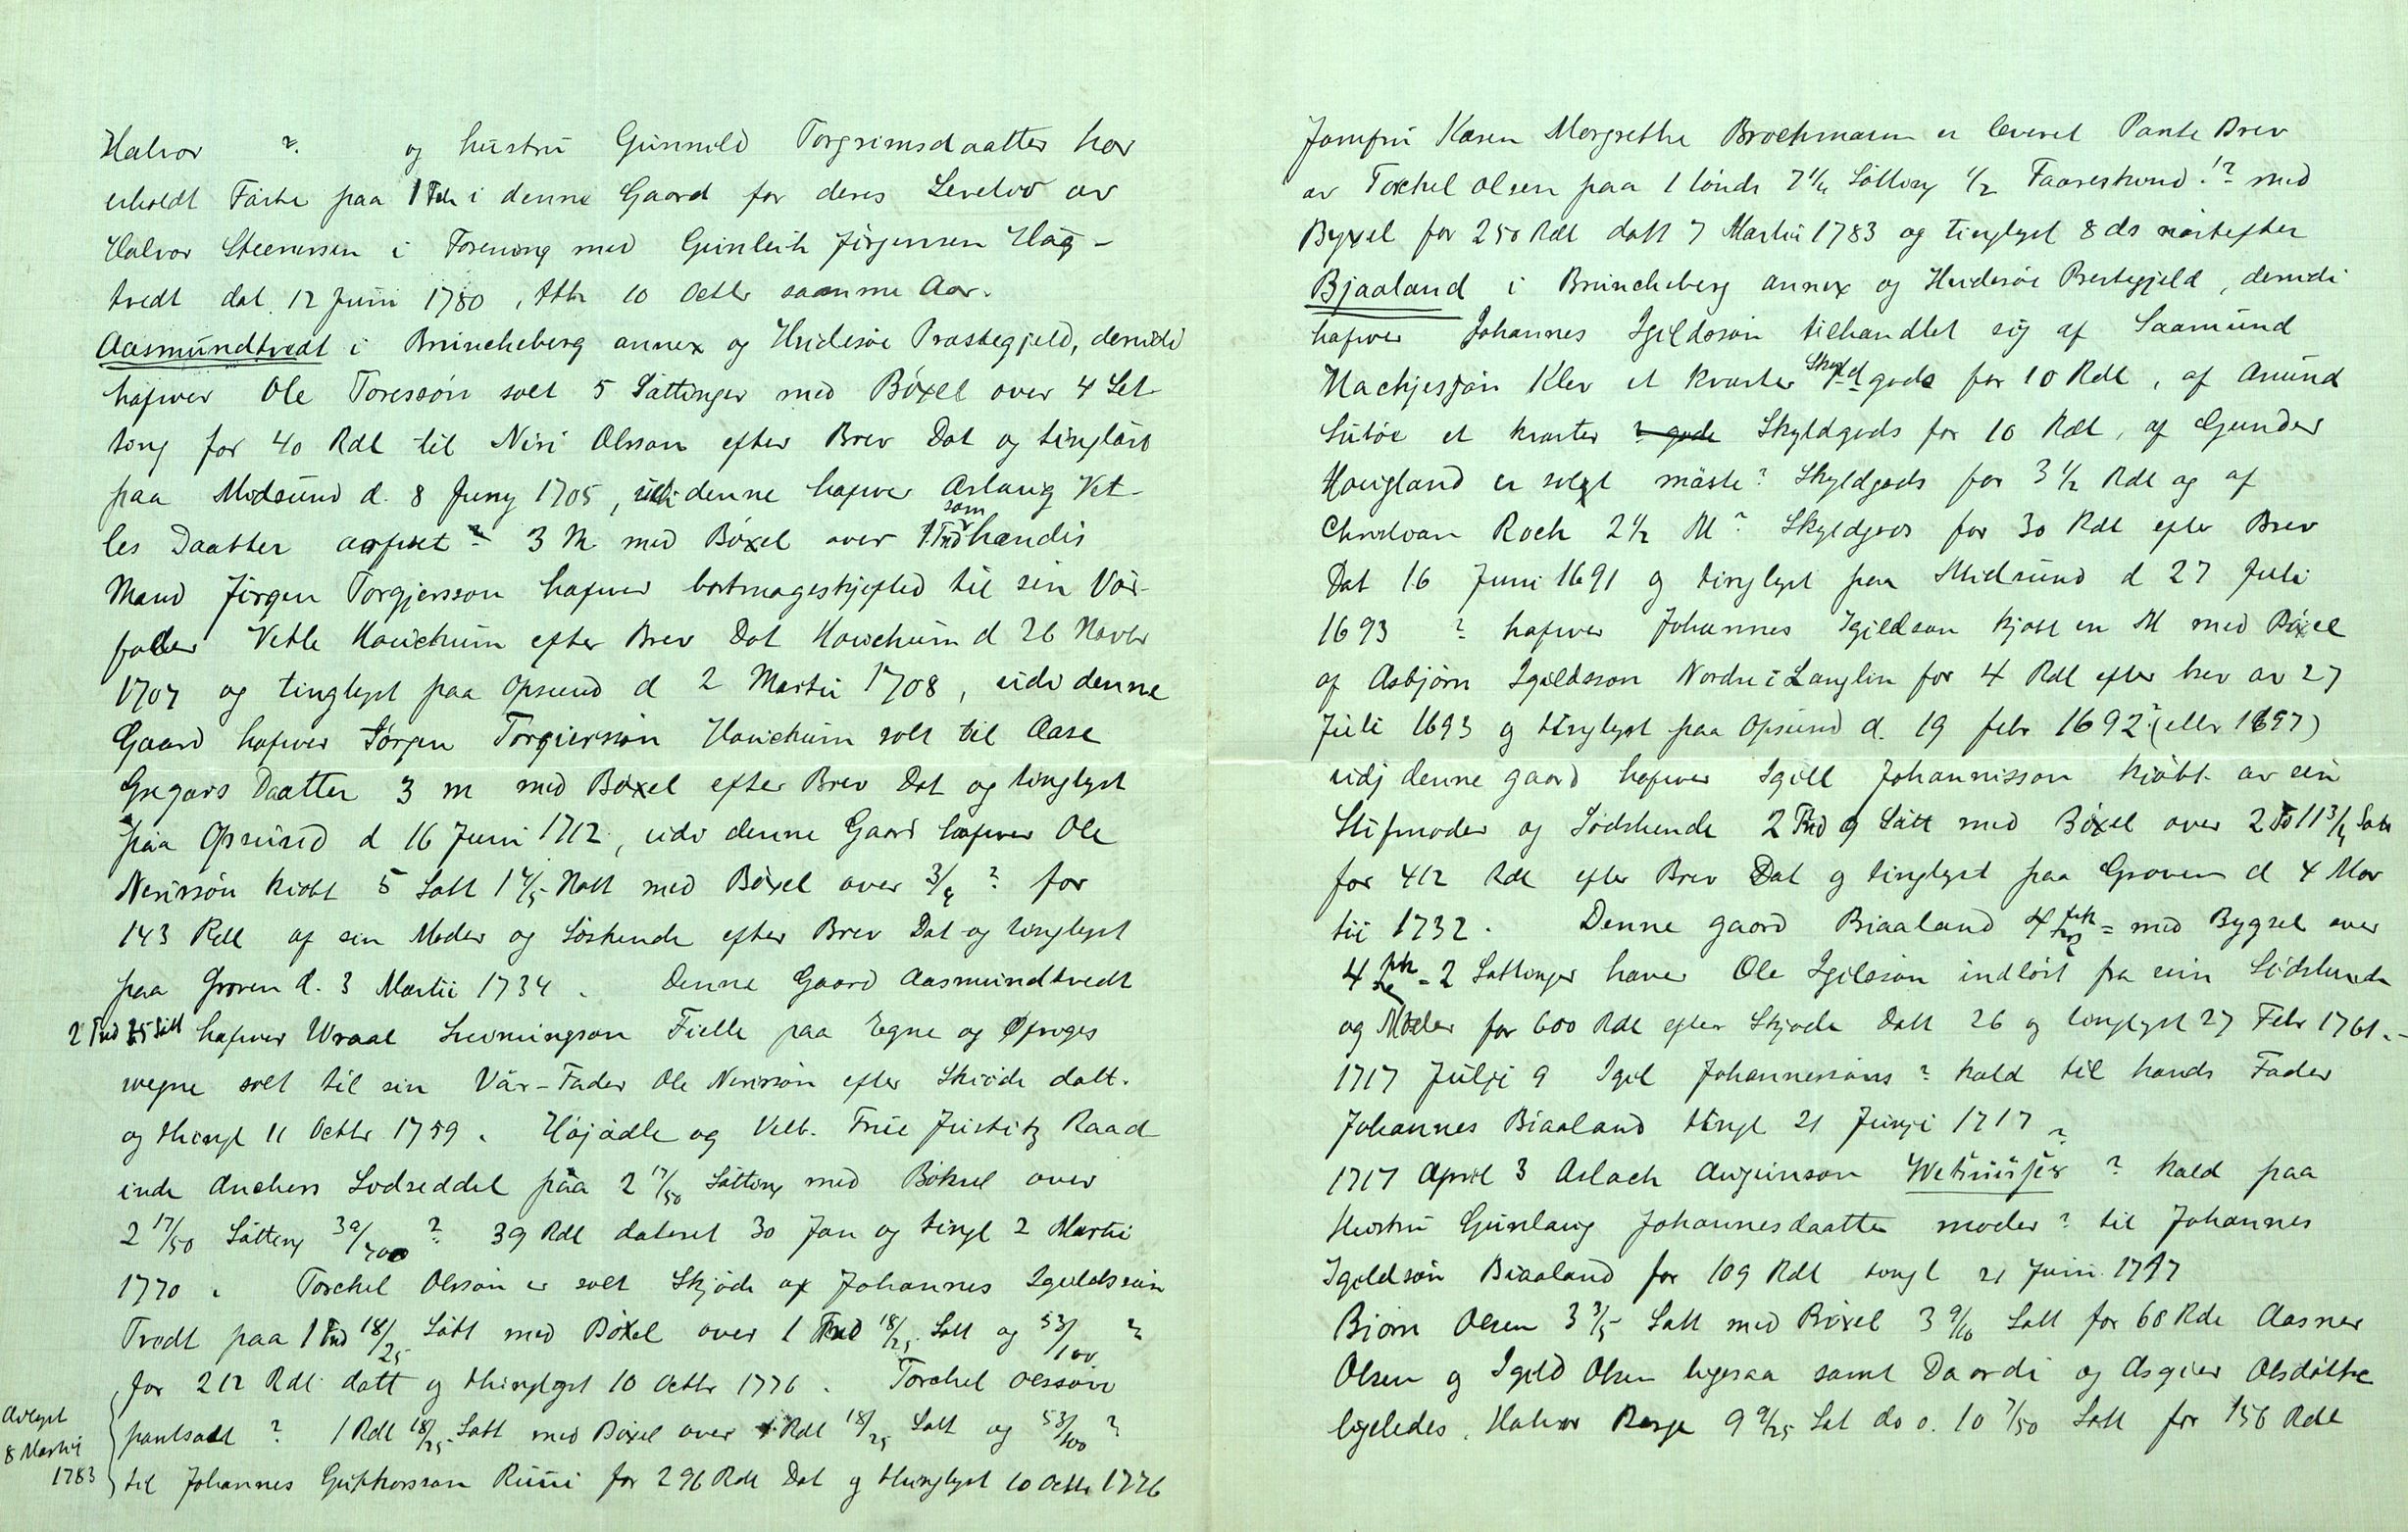 Halvor ? og hustru Gunnild Torgrimsdaatter har
erholdt Fæste paa 1 Td i denne Gaard for deres Levetid av
Halvor Steenersen i Forening med Gunleik Jörgensen Haug-
tvedt dat. 12 Juni 1780, tth 10 Octbr samme Aar.
Aasmundtvedt i Bruncheberg annex og Hvidesöe Præstegjeld, derudi
hafwer Ole Toressön solt 5 Sättinger med Böxel over 4 Set-
tong for 40 Rdl til Niri Olsson efter Brev Dat og tinglæst
paa Midsund d. 8 Juny 1705, udi denne hafwer Aslaug Vet-
les Daatter arfvet ? 3 M med Böxel over 1 Tnd som hændis
Mand Jörgen Torgjersson hafwer bortmageskjefted til sin Vär-
fader Vetle Hauichum efter Brev Dat Hauichum d 26 Novbr
1707 og tinglyst paa Opsund d 2 Martii 1708, udi denne
Gaard hafwer Jörgen Torgiersson Hauichum solt til Aase
Gregars Daatter 3 m med Böxel efter Brev Dat og tinglyst
paa Opsund d 16 Juni 1712, udi denne Gaard hafwer Ole
Nerissön kiöbt 5 Satt 1 4/5 Natt med Böxel over 3/4 ? for
143 Rdl af sin Moder og Söskende efter Brev Dat og tinglyst
paa Groven d. 3 Martii 1734. Denne Gaard Aasmundtvedt
2 Tnd 25 Sätt hafwer Wraal Suinungson Fielle paa Egne og Öfriges
wegne solt til sin Vär-Fader Ole Nerissön efter Skiöde datt.
og thingl 11 Octbr 1759. Höjädle og Velb. Frue Justitz Raad
inde Anchers Lodseddel paa 2 17/50 Sätting med Böksel over
2 17/50 Sätting 39/700 ? 39 Rdl dateret 30 Jan og tingl 2 Martii
1770. Torchel Olssön er solt Skjöde af Johannes Igieldssön
Tvedt paa 1 Tnd 18/25 Sätt med Böxel over 1 Tnd 18/25 Satt og 53/100 ?
for 212 Rdl datt og thinglyst 10 Octbr 1776. Torchel Olssön
pantsatt ? 1 Rdl 18/25 Satt med Böxel over 1 Rdl 18/25 Satt og 53/100 ?
til Johannes Guttormsson Rui for 296 Rdl Dat og thinglyst 10 Octbr 1776
Avlyst
8 Martii
1783
Jomfru Karen Margrethe Brochmann er leveret Pante Brev
av Torchel Olsen paa 1 tönde 7 1/4 Sätting 1/2 Faareskind !? med
Byxel for 250 Rdl datt 7 Martii 1783 og tinglyst 8 ds næstefter
Bjaaland i Bruncheberg annex og Hvidesöe Prestegjeld, derudi
hafwer Johannes Igildssön tilhandlet sig af Saamund
Hachjessön Klev et kvarter Skyld gods for 10 Rdl, af Anund
Sutöe et kvarter Skyldgods for 10 Rdl, af Gunder
Hougland er solgt mäste ? Skyldgods for 3 1/2 Rdl og af
Christian Roch 2 1/2 M ? Skyldgods for 30 Rdl efter Brev
Dat 16 Juni 1691 og tinglyst paa Midsund d 27 Juli
1693 ? hafwer Johannes Igildson kjöbt en M med Böxel
af Asbjörn Igildsson Nordre i Langlim for 4 Rdl efter brev av 27
Juli 1693 og tinglyst paa Opsund d. 19 febr 1692 ? (eller 1697)
udj denne gaard hafwer Igill Johannisson kiöbt av sin
Stifmoder og Södskende 2 Tnd 9 Sätt med Böxel over 2 Td 11 3/4 Satt
for 412 Rdl efter Brev Dat og tinglyst paa Groven d 4 Mar
tii 1732. Denne gaard Biaaland 4 = med Bygsel over
4 = 2 Sattinger haver Ole Igilssön indlöst fra sine Södskende
og Moder for 600 Rdl efter Skjöde Datt 26 og tinglyst 27 Febr 1761.-
1717 Julji 9 Igel Johannessöns ? kald til hands Fader
Johannes Biaaland tingl 21 Junji 1717
1717 April 3 Aslach Augunson ? kald paa
Hustru Gunlaug Johannesdaatter moder ? til Johannes
Igildsön Biaaland for 109 Rdl tingl 21 Juni 1717
Biörn Olsen 3 3/5 Satt med Böxel 3 9/10 Satt for 60 Rdl Aasner
Olsen og Igild Olsen ligesaa samt Daardi og Asgier Olsdötre
ligeledes. Halvor Berge 9 9/25 Sat do o. 10 7/50 Satt for 156 Rdl